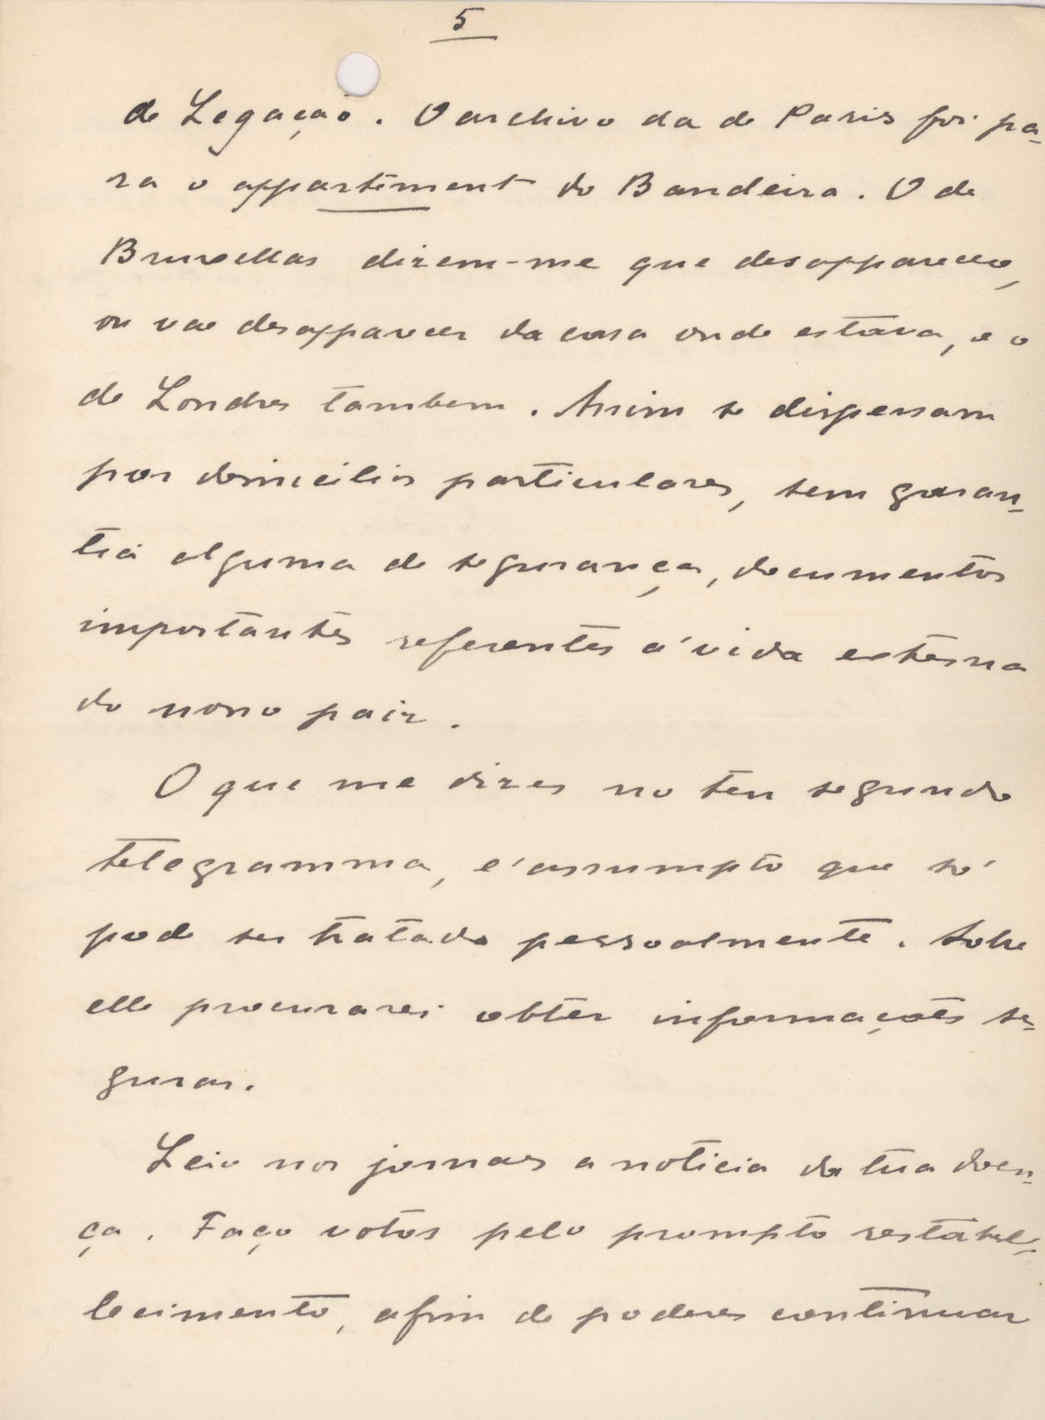 5
de Legação. O archivo da de Paris foi pa-
ra o appartement do Bandeira. O de
Bruxellas dizem-me que desappareceu,
ou vae desapparecer da casa onde estava, e o
de Londres tambem. Assim se dispersam
por domicilios particulares, sem garan-
tia alguma de segurança, documentos
importantes referentes á vida externa
do nosso paiz.
O que me dizes no teu segundo
telegramma, é assumpto que só
pode ser tratado pessoalmente. Sobre
elle procurarei obter informações se-
guras.
Leio nos jornaes a noticia da tua doen-
ça. Faço votos pelo prompto restabe-
lecimento, afim de poderes continuar